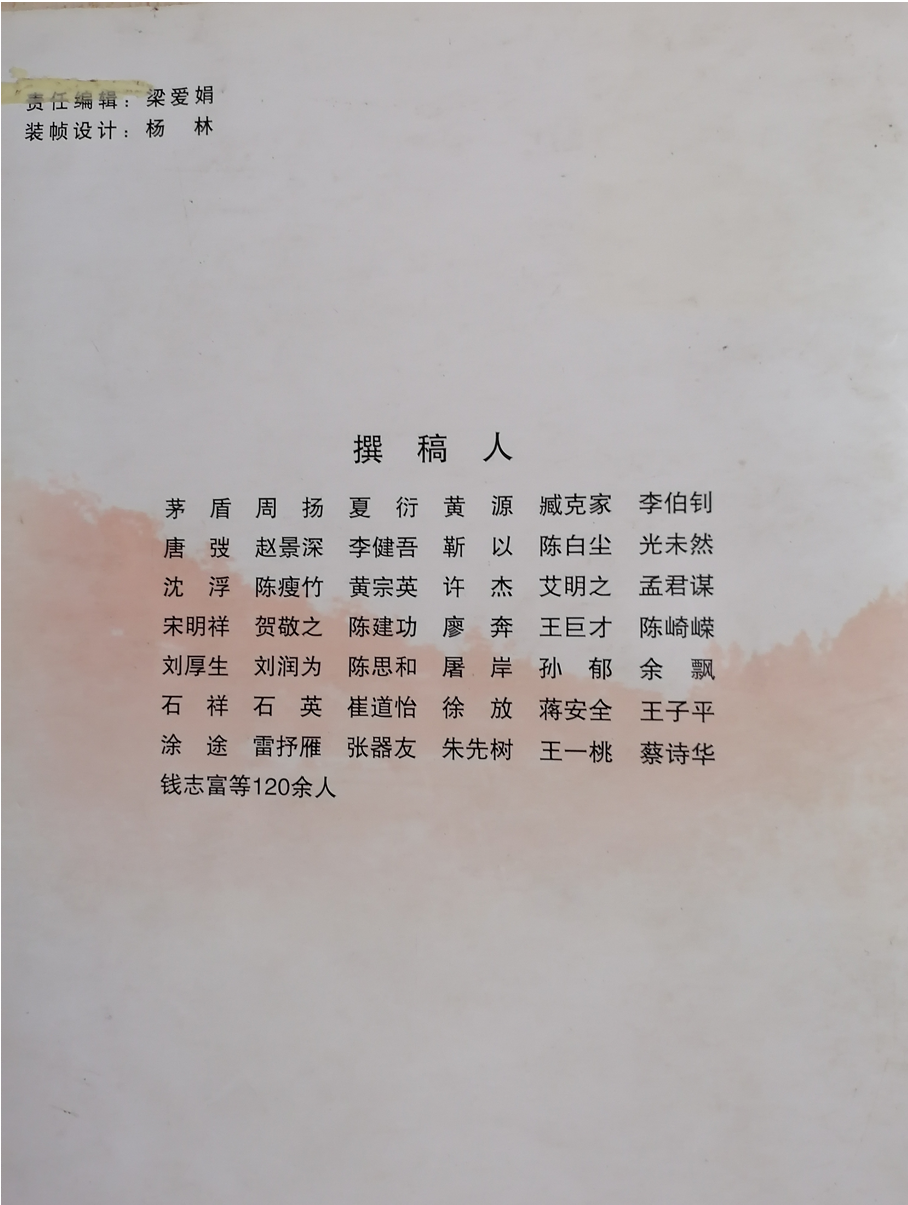 责任编辑：梁爱娟
装帧设计：杨　林
撰　稿　人
茅　盾　周　扬　夏　衍　黄　源　臧克家　李伯钊
唐　弢　赵景深　李健吾　靳　以　陈白尘　光未然
沈　浮　陈瘦竹　黄宗英　许　杰　艾明之　孟君谋
宋明祥　贺敬之　陈建功　廖　奔　王巨才　陈崎嵘
刘厚生　刘润为　陈思和　屠　岸　孙　郁　余　飘
石　祥　石　英　崔道怡　徐　放　蒋安全　王子平
涂　途　雷抒雁　张器友　朱先树　王一桃　蔡诗华
钱志富等120余人